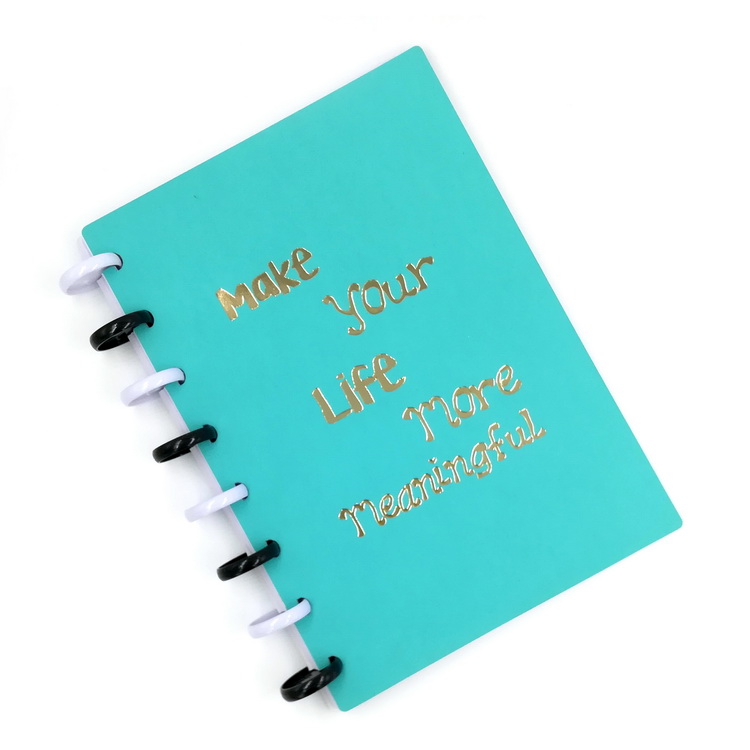 Make
Your
Life
More
Meaningful